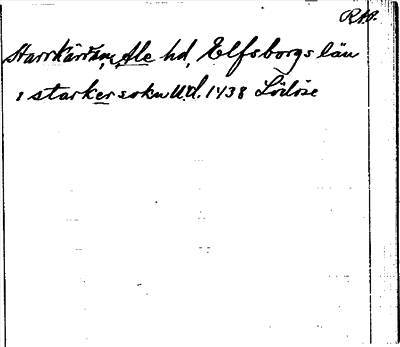 RAP.
Starrkärr sn, Ale hd, Elfsborgs län
i starker sokn u.d. 1438 Lödöse